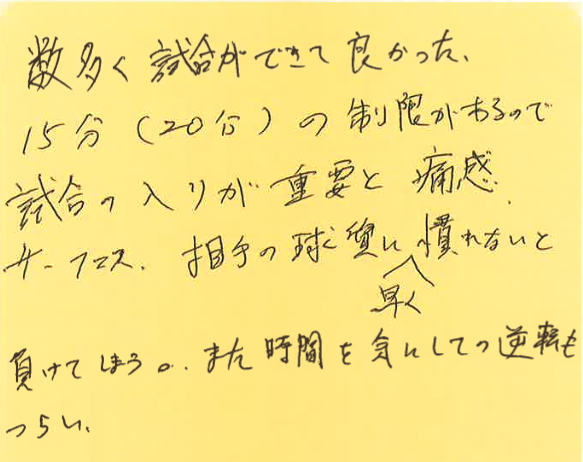 数多く試合ができて良かった、
15分（20分）の制限があるので
試合の入りが重要と痛感、
サーフェス、相手の球質に早く慣れないと
負けてしまう。また時間を気にしての逆転も
つらい、